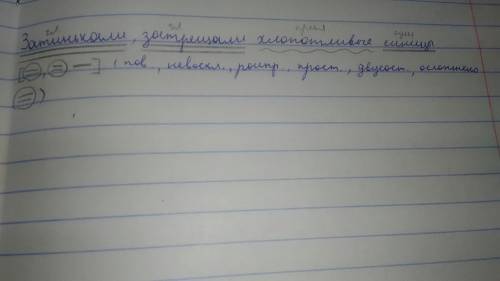 гл гл прил сущ
Затинькали, затрещали хлопотливые синицы
[ , ] (пов., невоскл., распр., прост., двусост., осложнено
)